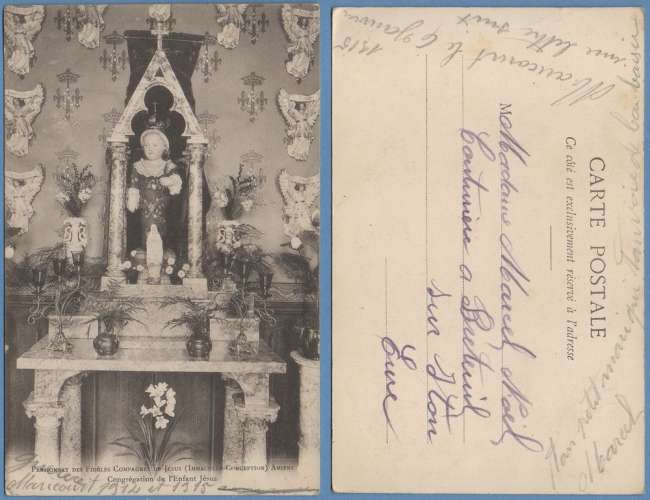 PENSIONNAT DES FIDÈLES COMPAGNES DE JÉSUS (IMMACULÉE-CONCEPTION) AMIENS
Congrégation de l'Enfant Jésus
Guerre
Maricourt 1914 et 1915
CARTE POSTALE
Ce côté est exclusivement réservé à l'adresse
M Madame Marcel Noël
Couturière a Breteuil
sur Iton
Eure
Maricourt le 6 Janvier
1915
une lettre suit
Ton petit
Marcel